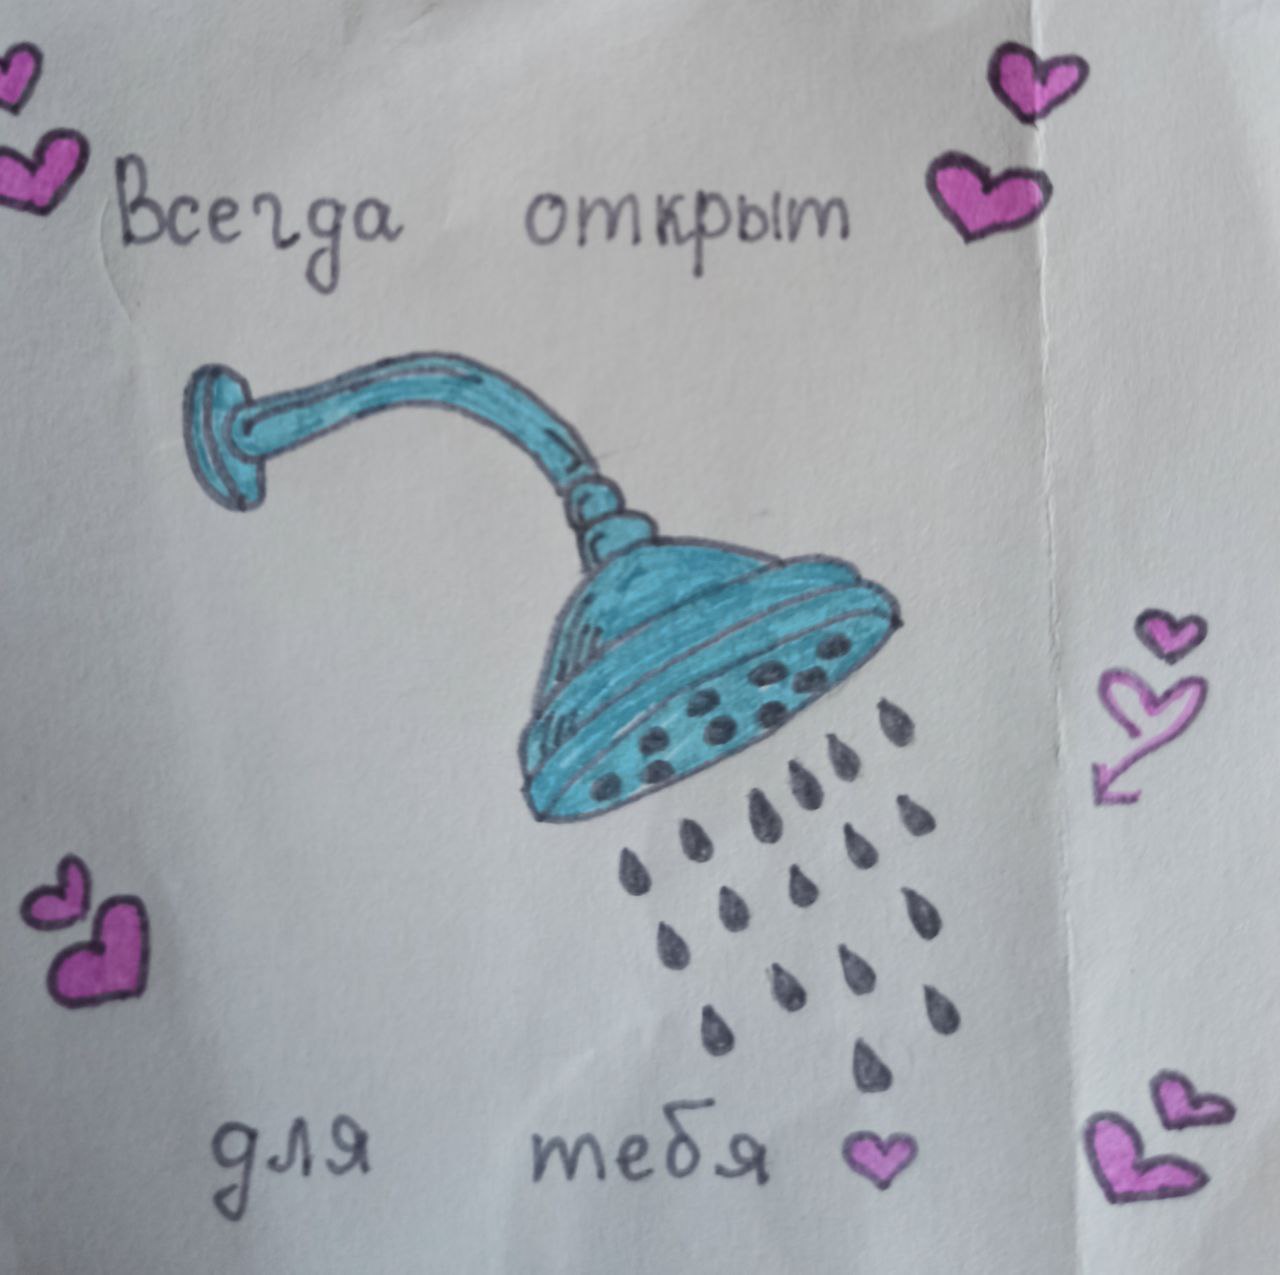 Всегда открыт
для тебя